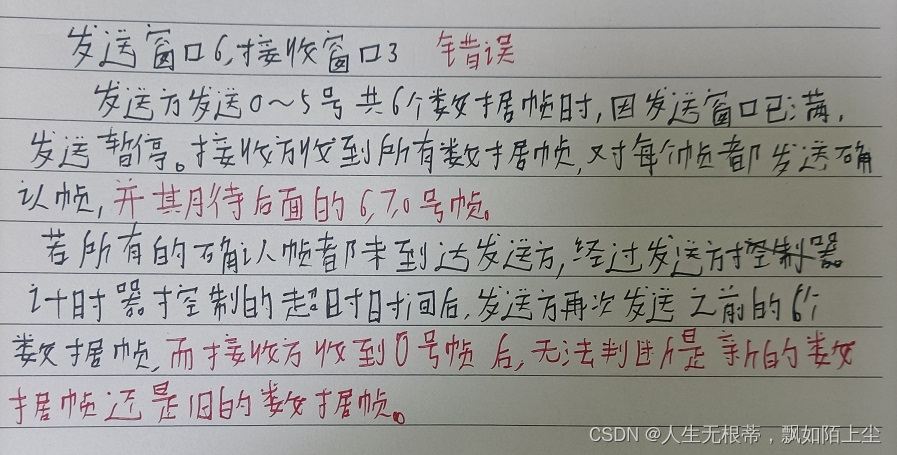 发送窗口6,接收窗口3 错误
发送方发送0~5号共6个数据帧时,因发送窗口已满,
发送暂停。接收方收到所有数据帧,对每个帧都发送确
认帧,并期待后面的6,7,0号帧。
若所有的确认帧都未到达发送方,经过发送方控制器
计时器控制的超时时间后,发送方再次发送之前的6个
数据帧,而接收方收到0号帧后,无法判断是新的数
据帧还是旧的数据帧。
CSDN @人生无根蒂,飘如陌上尘